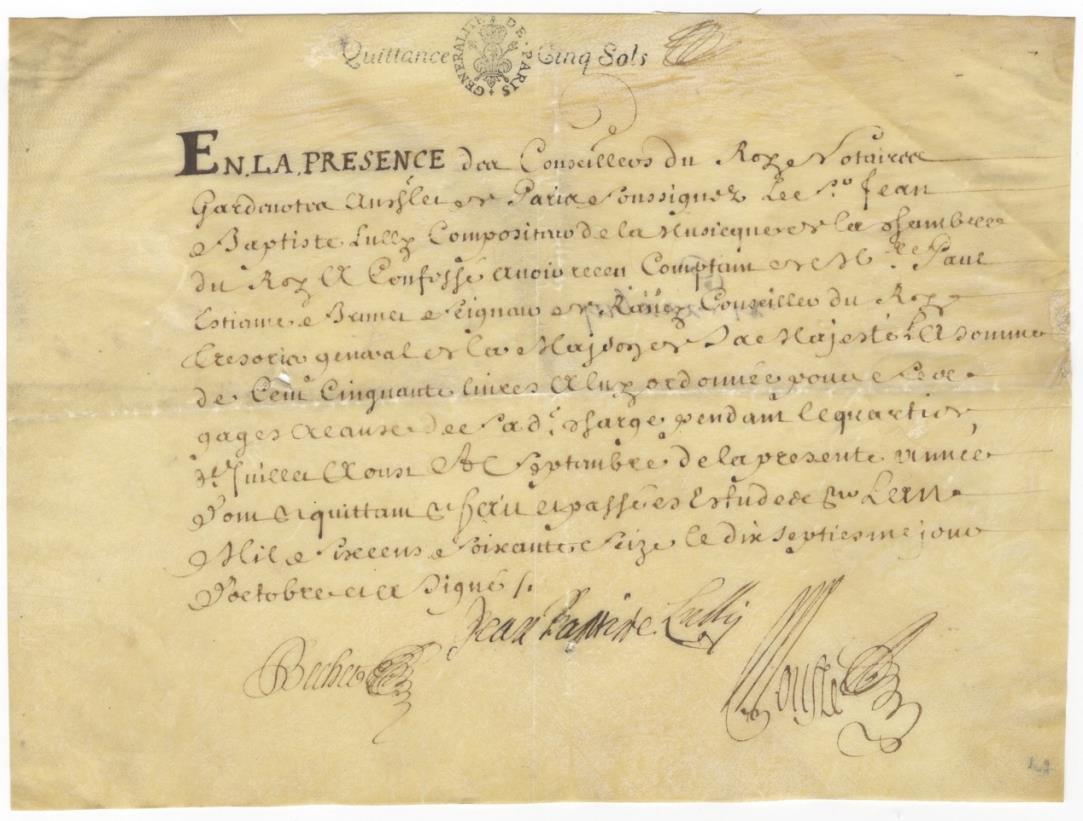 Quittance GENERALITÉ DE PARIS Cinq Sols
EN LA PRESENCE des Conseillers du Roy Notaires
Gardenottes au Paris Soussignez Le Sr. Jean
Baptiste Lully Compositeur de la Musicque de la Chambre
du Roy A Confessé avoir receu Comptant de Paul
Conseiller du Roy
Tresorier general de la Maison de Sa Majesté La Somme
de Cent Cinquante livres A luy ordonnée pour Ses
gages A cause de Sad. charge pendant le quartier
de Juillet Aoust & Septembre de la presente année
Dont Quittant &c faict et passé es Estudes Lan
Mil Six cens Soixante Seize le dix Septiesme jour
D'octobre et a Signé /.
Jean Baptiste Lully